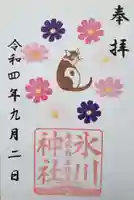 奉拝
氷川
神社
令和四年九月二日